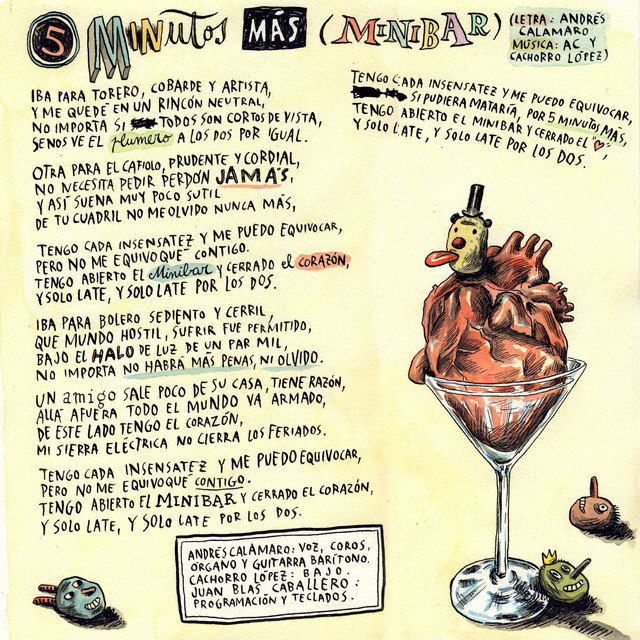 5 MINUTOS MÁS (MINIBAR)
(LETRA: ANDRÉS
CALAMARO
MÚSICA: AC Y
CACHORRO LÓPEZ)
IBA PARA TORERO, COBARDE Y ARTISTA,
Y ME QUEDÉ EN UN RINCÓN NEUTRAL,
NO IMPORTA SI TODOS SON CORTOS DE VISTA,
SE NOS VE EL Plumero A LOS DOS POR IGUAL.
OTRA PARA EL CAFIOLO, PRUDENTE Y CORDIAL,
NO NECESITA PEDIR PERDÓN JAMÁS,
Y ASÍ SUENA MUY POCO SUTIL
DE TU CUADRIL NO ME OLVIDO NUNCA MÁS,
TENGO CADA INSENSATEZ Y ME PUEDO EQUIVOCAR,
PERO NO ME EQUIVOQUÉ CONTIGO.
TENGO ABIERTO EL Minibar Y CERRADO el CORAZÓN,
Y SOLO LATE, Y SOLO LATE POR LOS DOS.
IBA PARA BOLERO SEDIENTO Y CERRIL,
QUE MUNDO HOSTIL, SUFRIR FUE PERMITIDO,
BAJO EL HALO DE LUZ DE UN PAR MIL,
NO IMPORTA NO HABRÁ MÁS PENAS, NI OLVIDO.
UN amigo SALE POCO DE SU CASA, TIENE RAZÓN,
ALLÁ AFUERA TODO EL MUNDO VA ARMADO,
DE ESTE LADO TENGO EL CORAZÓN,
MI SIERRA ELÉCTRICA NO CIERRA LOS FERIADOS.
TENGO CADA INSENSATEZ Y ME PUEDO EQUIVOCAR,
PERO NO ME EQUIVOQUÉ CONTIGO.
TENGO ABIERTO EL MINIBAR Y CERRADO EL CORAZÓN,
Y SOLO LATE, Y SOLO LATE POR LOS DOS.
TENGO CADA INSENSATEZ Y ME PUEDO EQUIVOCAR,
SI PUDIERA MATARÍA, POR 5 MINUTOS MÁS,
TENGO ABIERTO EL MINIBAR Y CERRADO EL "♥",
Y SOLO LATE, Y SOLO LATE POR LOS DOS.
ANDRÉS CALAMARO: VOZ, COROS,
ÓRGANO Y GUITARRA BARÍTONO.
CACHORRO LÓPEZ: BAJO.
JUAN BLAS CABALLERO:
PROGRAMACIÓN Y TECLADOS.